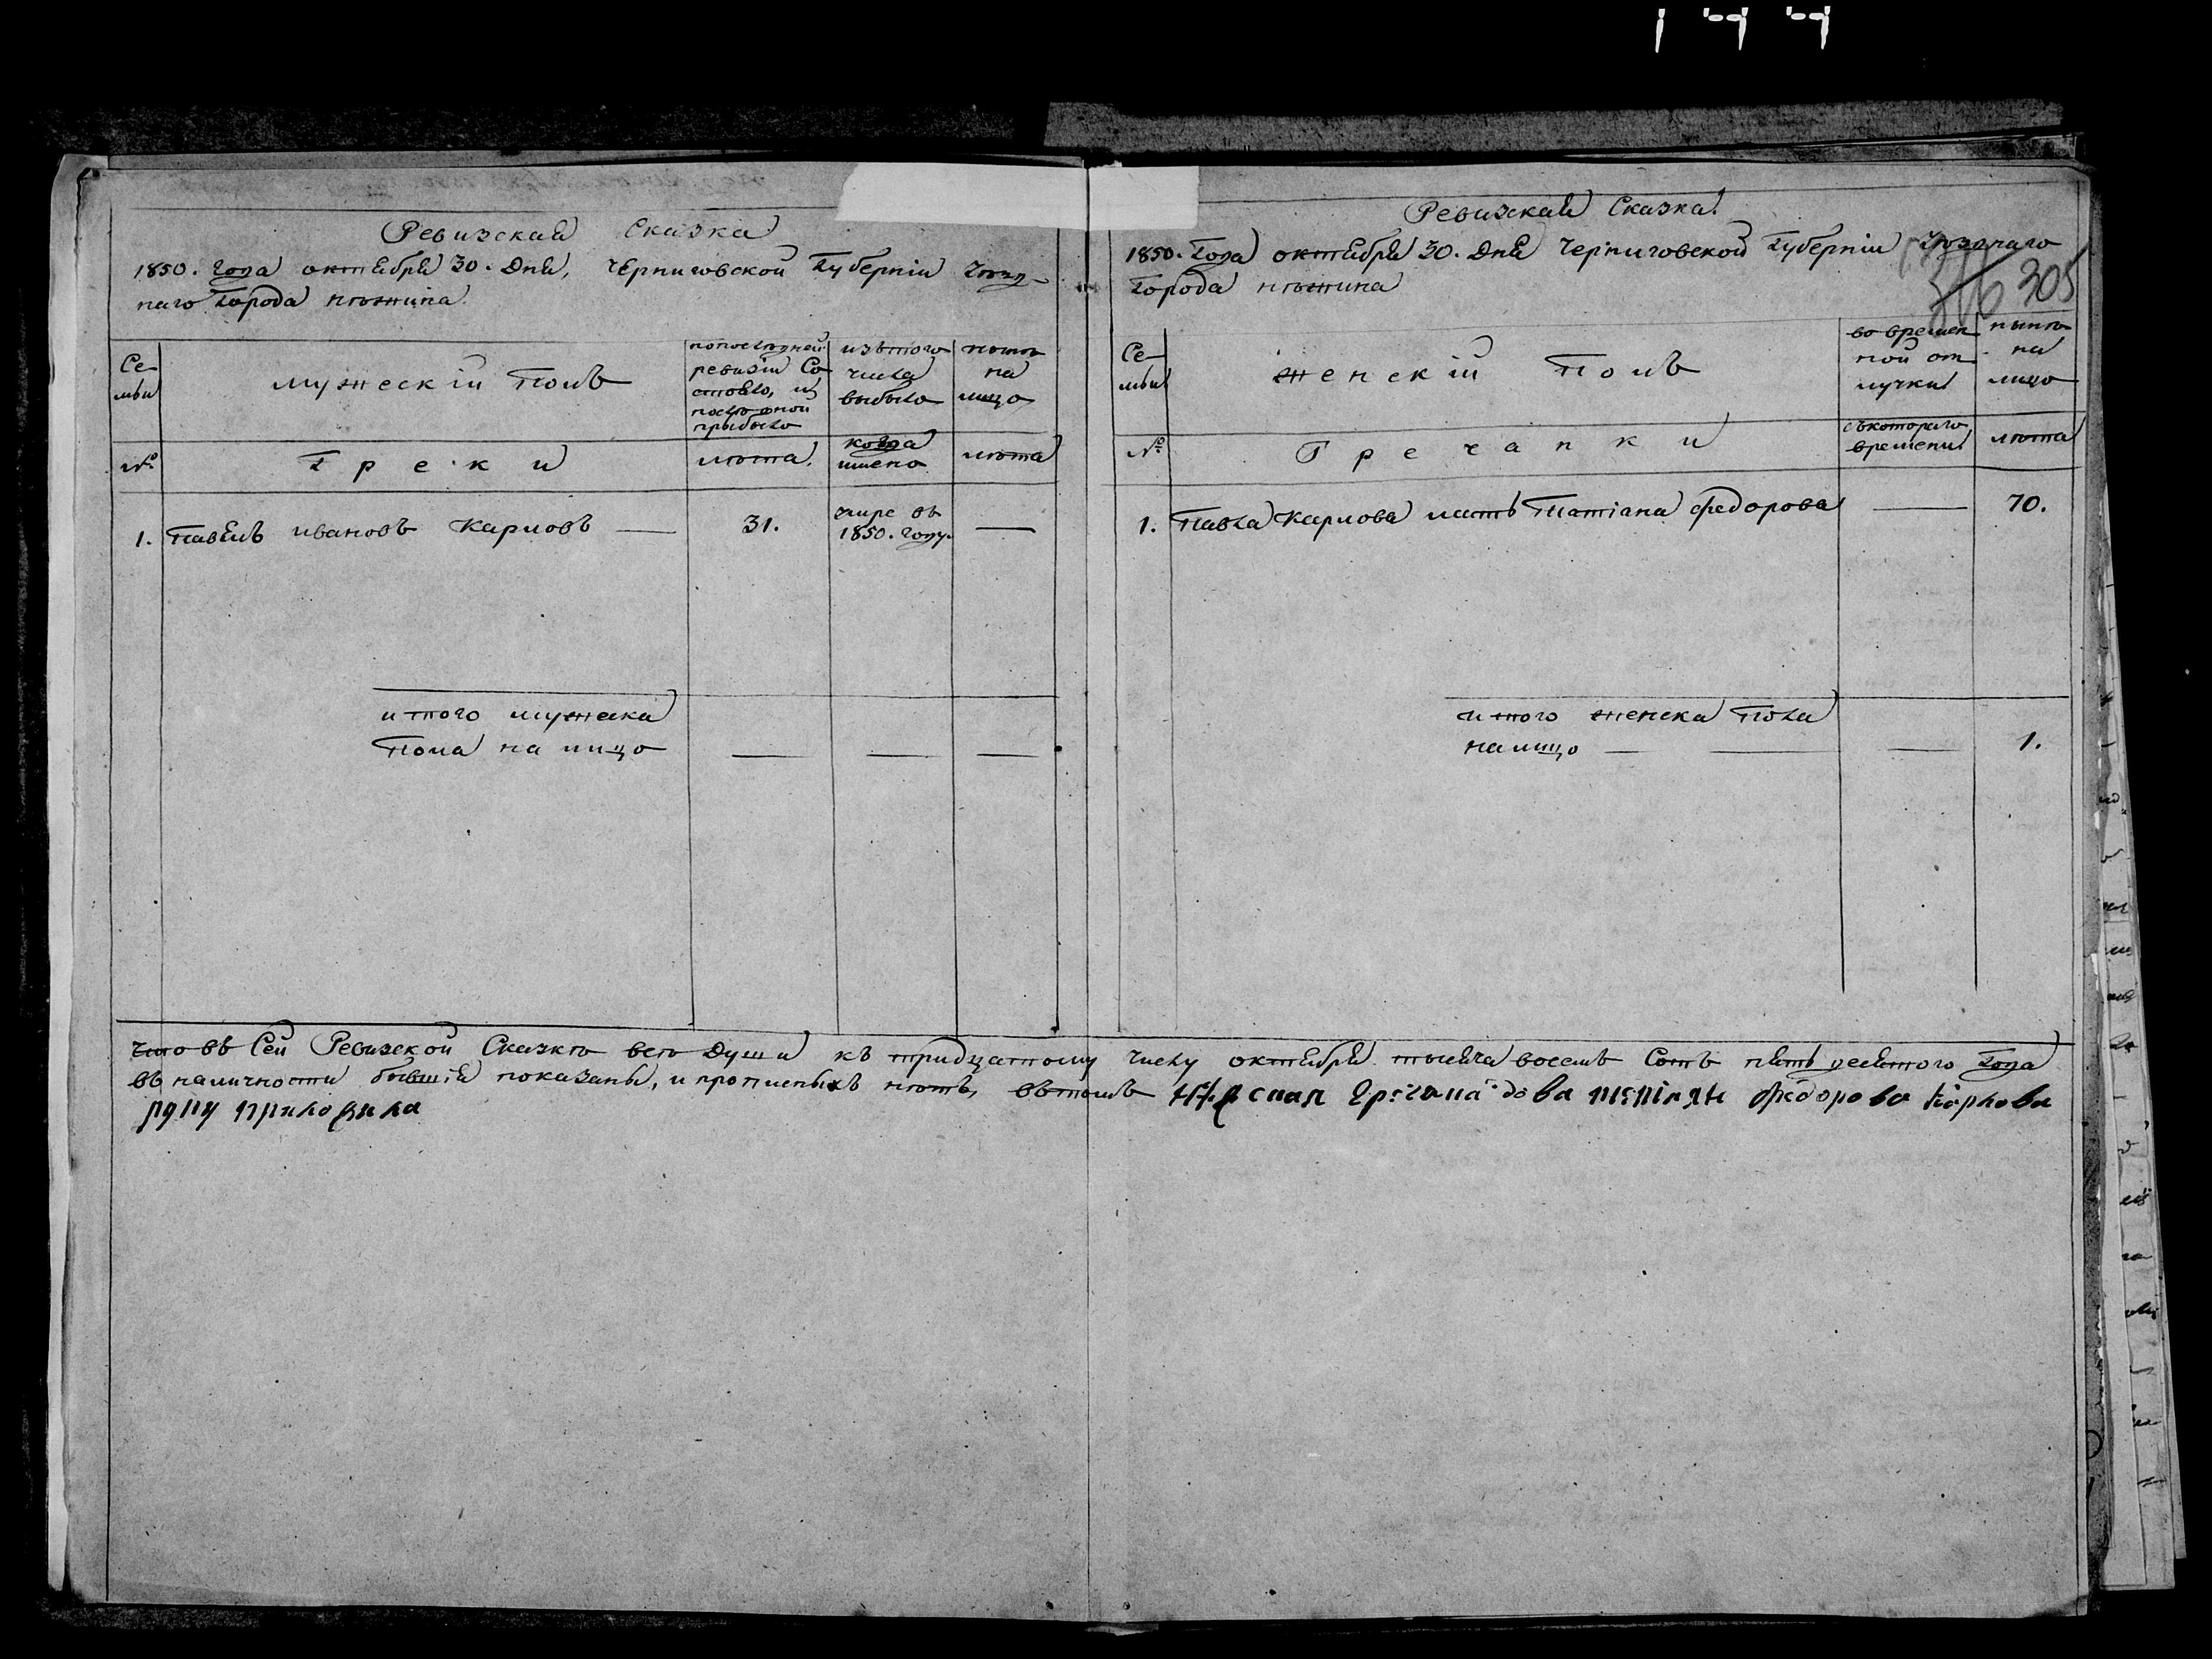 Ревизская Сказка
1850. года октября 30. дня, Черниговской Губернии уезд-
наго города нѣжина.
Се-
мьи
мужескій полъ
попослѣдней
ревизіи Со-
стояло, и
послѣ оной
прибыло
изътого
числа
выбыло
нынѣ
на
лицо
№
Греки
лѣта.
когда
имено
лѣта
1. павелъ ивановъ Карповъ — 31. умре въ 1850. году. —
итого мужеска
пола на лицо — — —
Ревизская Сказка.
1850. Года октября 30. дня Черниговской Губерніи уѣзднаго
Города нѣжина
316 305
Се-
мьи
женскій полъ
во времен-
ной от-
лучки
нынѣ
на
лицо
№
Гречанки
съкотораго
времени
лѣта
1. Павла Карпова мать Татіана федорова — 70.
итого женска пола
налицо — — — 1.
что въ Сей Ревизской Сказкѣ всѣ души къ тридцатому числу октября тысяча восемъ Сотъ пять десятого Года
въ наличности бывшія показаны, и прописныхъ нѣтъ, вътомъ Нѣжеская Гречанка вдова федорова Карпова
руку приложила